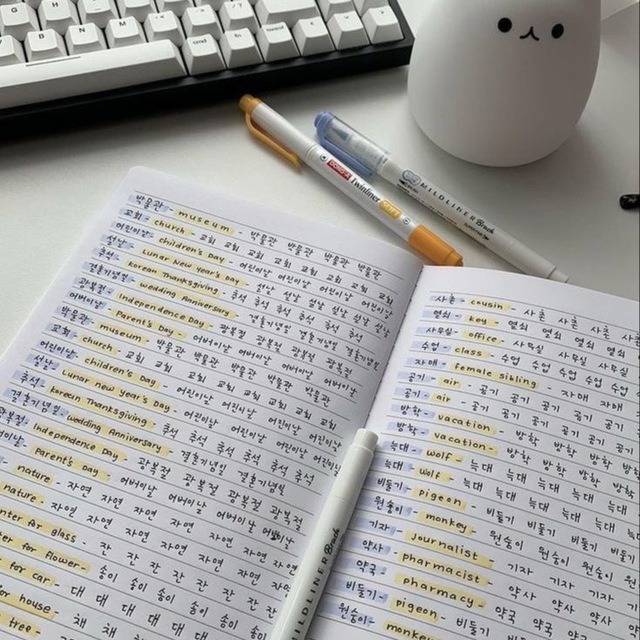 cmd
DONG-A Twinliner
MILDLINER Brush
박물관 - museum - 박물관 박물관 박물관 박물관
교회 - church - 교회 교회 교회 교회 교회 교회 교회
어린이날 - children's Day - 어린이날 어린이날 어린이날
설날 - Lunar New year's Day - 설날 설날 설날 설날 설날 설날
추석 - Korean Thanksgiving - 추석 추석 추석 추석 추석
결혼기념일 - wedding Anniversary - 결혼기념일 결혼기념일
광복절 - Independence Day - 광복절 광복절 광복절 광복절
어버이날 - Parent's Day - 어버이날 어버이날 어버이날
박물관 - museum - 박물관 박물관 박물관 박물관
교회 - church - 교회 교회 교회 교회 교회 교회
어린이날 - children's Day - 어린이날 어린이날 어린이날
설날 - Lunar new year's Day -
추석 - Korean Thanksgiving - 추석 추석 추석 추석
결혼기념일 - wedding Anniversary - 결혼기념일 결혼기념일
광복절 - Independence Day - 광복절 광복절 광복절 광복절
Parent's Day - 어버이날 어버이날 어버이날
nature - 자연 자연 자연 자연 자연
nature - 자연 자연 자연 자연 자연 자연
for glass - 잔 잔 잔 잔 잔 잔
for flower - 송이 송이 송이 송이 송이
for car - 대 대 대 대 대 대
for house - 채 채 채 채
tree
사촌 - cousin - 사촌 사촌 사촌 사촌
열쇠 - key - 열쇠 열쇠 열쇠 열쇠
사무실 - office - 사무실 사무실 사무실
수업 - class - 수업 수업 수업 수업 수업
자매 - female sibling - 자매 자매
공기 - air - 공기 공기 공기 공기 공기
공기 - air - 공기 공기 공기 공기 공기
방학 - vacation - 방학 방학 방학 방학
방학 - vacation - 방학 방학 방학 방학
늑대 - wolf - 늑대 늑대 늑대 늑대
늑대 - wolf - 늑대 늑대 늑대 늑대
비둘기 - pigeon - 비둘기 비둘기 비둘기
원숭이 - monkey - 원숭이 원숭이 원숭이
기자 - journalist - 기자 기자 기자
약사 - pharmacist - 약사 약사 약사
약국 - pharmacy - 약국 약국 약국
비둘기 - pigeon - 비둘기 비둘기
원숭이 -
MILDLINER Brush